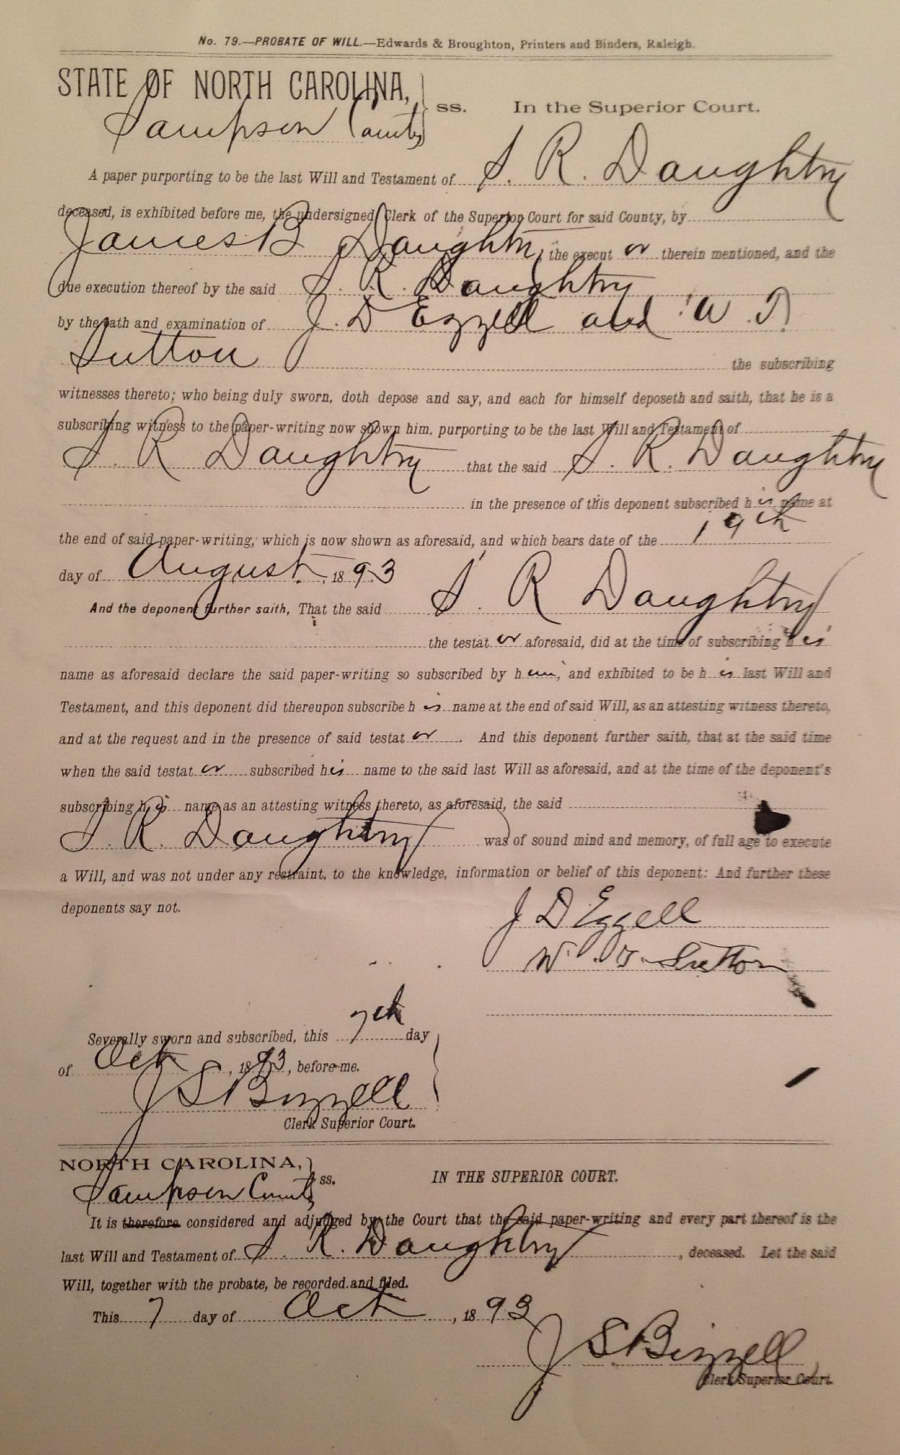 No. 79.—PROBATE OF WILL.—Edwards & Broughton, Printers and Binders, Raleigh.
STATE OF NORTH CAROLINA,
Sampson County
ss. In the Superior Court.
A paper purporting to be the last Will and Testament of S. R. Daughtry
deceased, is exhibited before me, the undersigned, Clerk of the Superior Court for said County, by
James B Daughtry, the execut or therein mentioned, and the
due execution thereof by the said S. R. Daughtry
by the oath and examination of J. D Ezzell and W. T.
Sutton the subscribing
witnesses thereto; who being duly sworn, doth depose and say, and each for himself deposeth and saith, that he is a
subscribing witness to the paper-writing now shown him, purporting to be the last Will and Testament of
S. R Daughtry that the said S. R. Daughtry
in the presence of this deponent subscribed h is name at
the end of said paper-writing, which is now shown as aforesaid, and which bears date of the 19th
day of August, 1893
And the deponent further saith, That the said S. R Daughtry
the testat or aforesaid, did at the time of subscribing h is
name as aforesaid declare the said paper-writing so subscribed by h im, and exhibited to be h is last Will and
Testament, and this deponent did thereupon subscribe h is name at the end of said Will, as an attesting witness thereto,
and at the request and in the presence of said testat or. And this deponent further saith, that at the said time
when the said testat or subscribed his name to the said last Will as aforesaid, and at the time of the deponent's
subscribing h is name as an attesting witness thereto, as aforesaid, the said
S. R. Daughtry was of sound mind and memory, of full age to execute
a Will, and was not under any restraint, to the knowledge, information or belief of this deponent: And further these
deponents say not.
J D Ezzell
W. T. Sutton
Severally sworn and subscribed, this 7th day
of Oct, 1893, before me.
J S Bizzell
Clerk Superior Court.
NORTH CAROLINA,
Sampson County
ss. IN THE SUPERIOR COURT.
It is therefore considered and adjudged by the Court that the said paper-writing and every part thereof is the
last Will and Testament of S. R. Daughtry, deceased. Let the said
Will, together with the probate, be recorded and filed.
This 7 day of Oct, 1893
J S Bizzell
Clerk Superior Court.